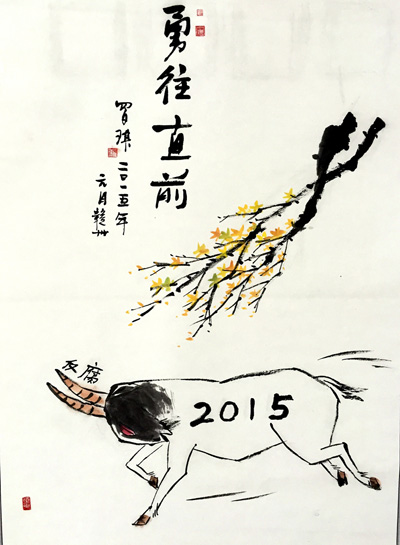 勇往直前
胃琪
二〇一五年
元月赣州
反腐
2015